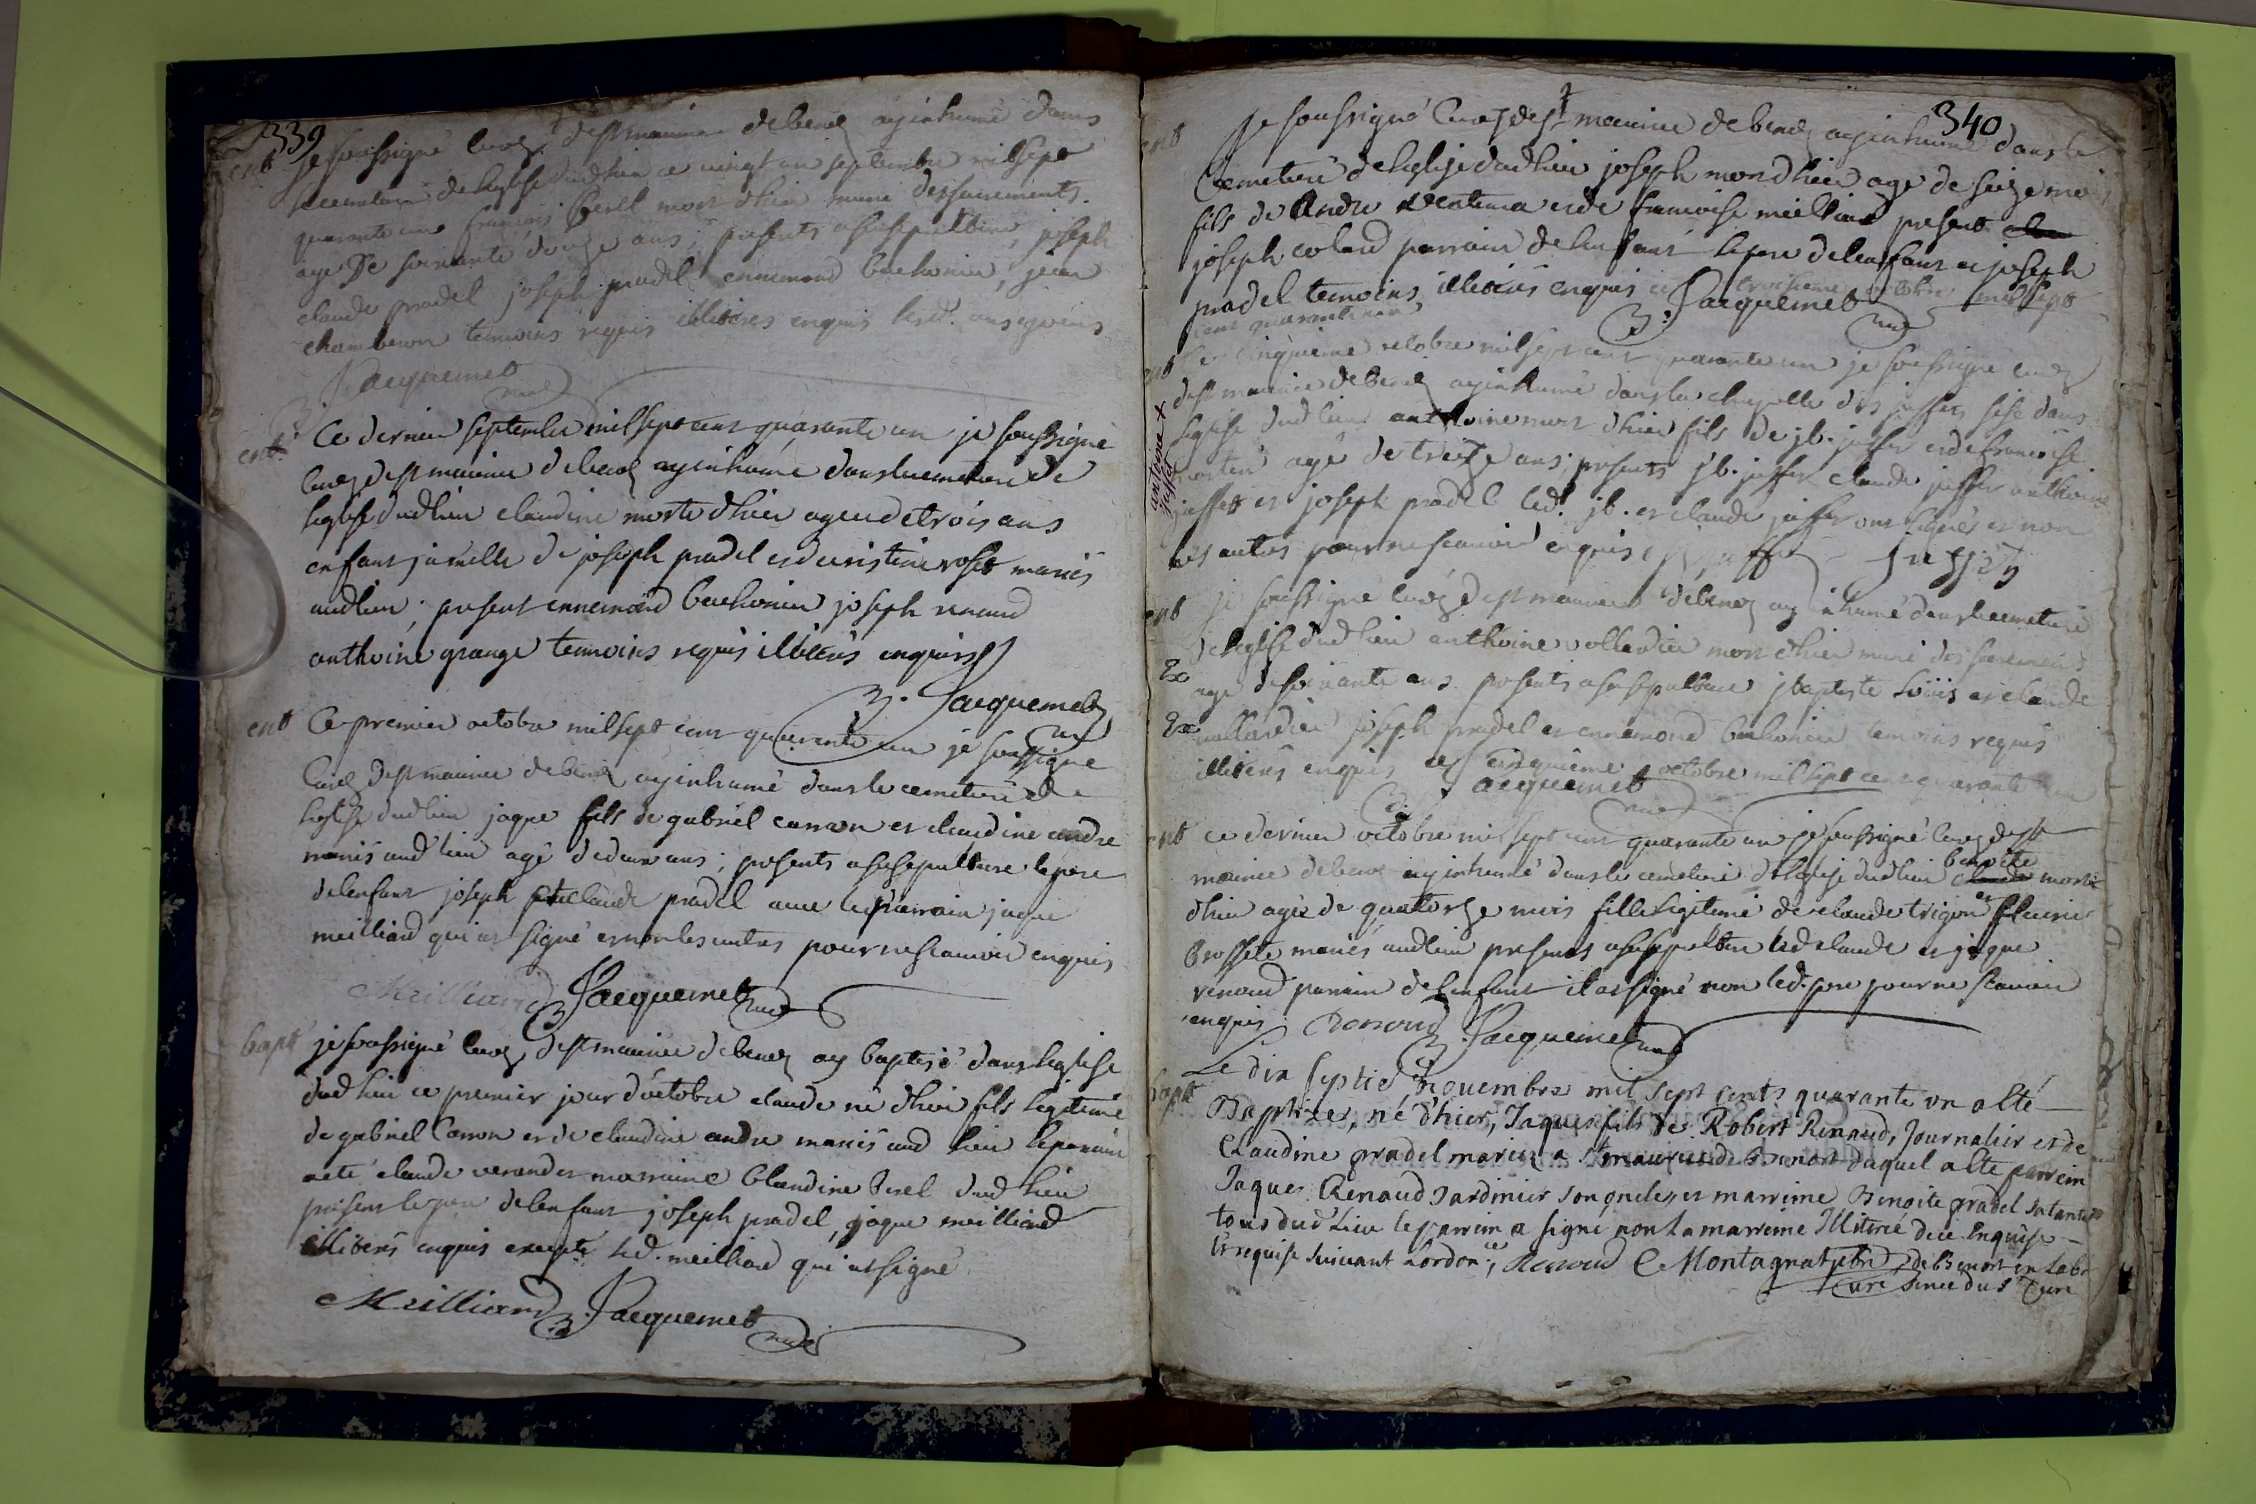 339
ent je soussigné curé de st maurice de benot ay inhumé dans
le cemetiere de leglise dud lieu ce vingt un septembre mil sept
quarante un françois perel mort dhier muni des sacrements
agé de soixante douze ans ; presents a sa sepulture joseph
claude pradel joseph pradel ennemond bachonin, jean
chamberon temoins requis illiterés enquis
Jacquemet curé
ent. Ce dernier septembre mil sept cent quarante un je soussigné
curé de st maurice de benot ay inhumé dans le cemetiere de
leglise dud lieu claudine morte dhier agee de trois ans
enfant jumelle de joseph pradel et de cristine roset mariés
aud lieu ; present ennemond bachonin joseph renaud
anthoine grange temoins requis illiterés enquis
Jacquemet curé
ent Ce premier octobre mil sept cent quarante un je soussigné
curé de st maurice de benot ay inhumé dans le cemetiere de
leglise dud lieu jaque fils de gabriel carron et claudine andre
mariés aud lieu agé de deux ans ; presents a sa sepulture le pere
de lenfant joseph et claude pradel avec le parrain jaque
meilliand qui at signé et non les autres pour ne scavoir enquis
Meilliand Jacquemet curé
bapt je soussigné curé de st maurice de benot ay baptisé dans leglise
dud lieu ce premier jour d'octobre claude né dhier fils legitime
de gabriel Carron et de claudine andre mariés aud lieu le parain
a eté claude verand et marraine Claudine perel dud lieu
present le pere de lenfant joseph pradel, jaque meilliand
illiterés enquis excepté led. meilliand qui at signé
Meilliand Jacquemet curé
340
ent Je soussigné Curé de st maurice de benot ay inhumé dans le
Cemetiere de leglise dud lieu joseph mort dhier agé de seize mois
fils de Andre et de francoise meilliand present
joseph colard parrain de lenfant le pere de lenfant et joseph
pradel temoins illiterés enquis ce troisieme octobre mil sept
cent quarante un Jacquemet curé
ent Le cinquieme octobre mil sept cent quarante un je soussigné curé
de st maurice de benot ay inhumé dans la chapelle des juffet sise dans
leglise dud lieu anthoine mort dhier fils de jb. juffet et de francoise
agé de treize ans ; presents jb. juffet claude juffet anthoine
juffet et joseph pradel led. jb. et claude juffet ont signés et non
les autres pour ne scavoir enquis juffet
antoine x
juffet
ent je soussigné curé de st maurice de benot ay inhumé dans le cemetiere
de leglise dud lieu anthoine vollardier mort dhier muni des sacrements
Ex agé de soixante ans presents a sa sepulture jbaptiste louis et claude
Ex vollardier joseph pradel et ennemond bachonin temoins requis
illiterés enquis ce cinquieme octobre mil sept cent quarante un
Jacquemet curé
ent ce dernier octobre mil sept cent quarante un je soussigné curé de st
maurice de benot ay inhumé dans le cemetiere de leglise dud lieu benoite morte
dhier agée de quatorze mois fille legitime de claude trigon et fleurie
brossete mariés aud lieu presents a sa sepulture led claude et jaque
renaud parrain de lenfant il at signé non led. pere pour ne scavoir
enquis Renaud Jacquemet curé
bapt Le dix septie novembre mil sept cents quarante un a eté
Baptizé, né d'hier, Jaques fils de Robert Renaud, Journalier et de
Claudine pradel mariez a st maurice de Benost duquel a eté parrein
Jaques Renaud Jardinier son oncle, et marreine Benoite pradel sa tante
tous dud Lieu le parrein a signé non La marreine Illiteré dece Enquise
et requise suivant Lordonce, Renaud C Montagnat pbre, de Benost en Lab
sence du sr Curé